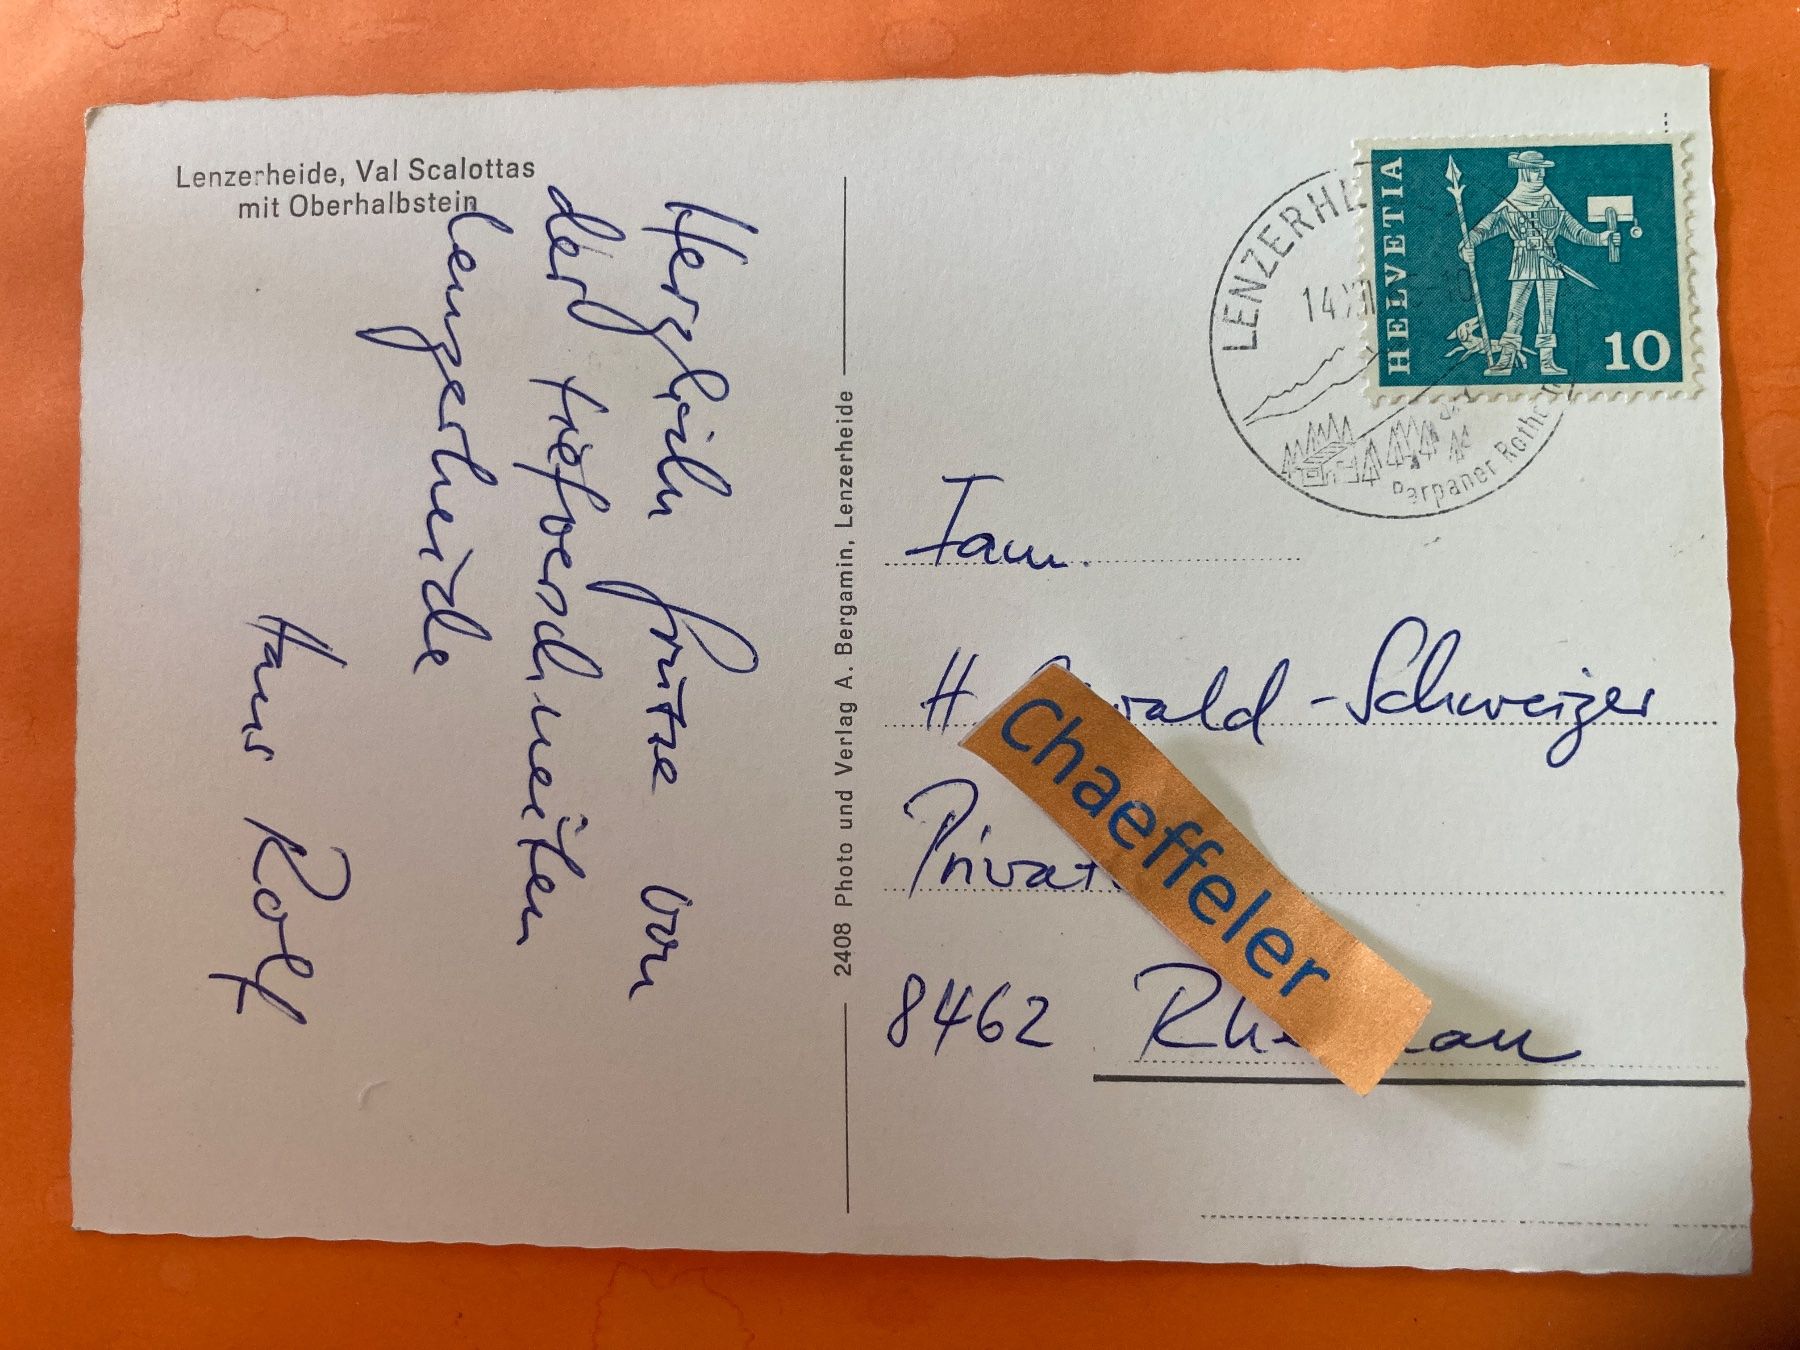 Lenzerheide, Val Scalottas
mit Oberhalbstein
Herzlich Grüsse von
der tiefverschneiten
Lenzerheide
Hans Rolf
2408 Photo und Verlag A. Bergamin, Lenzerheide
HELVETIA
10
LENZERHE
14.XI
-10
Parpaner Rotho
Fam.
H wald-Schweizer
Privat
8462 Rh au
Chaeffeler